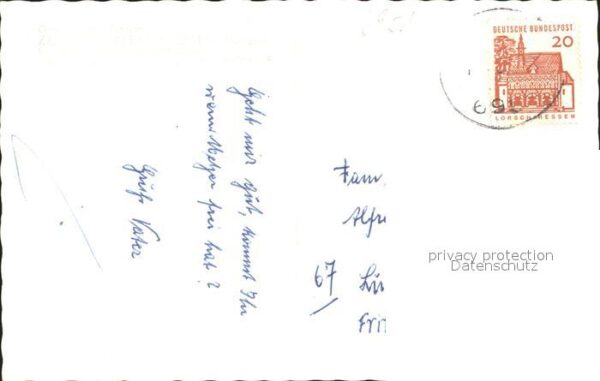 Geht mir gut, kommt Ihr
wenn Metzger frei hat?
Gruß Vater
DEUTSCHE BUNDESPOST
20
LORSCH/HESSEN
Fam.
Alfre
67
Lu
Fri
privacy protection
Datenschutz